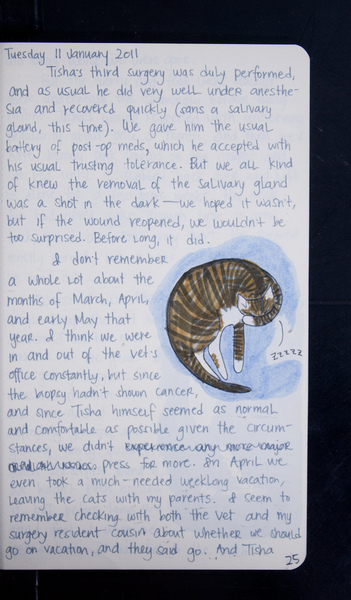 Tuesday 11 January 2011
Tisha's third surgery was duly performed,
and as usual he did very well under anesthe-
sia and recovered quickly (sans a salivary
gland, this time). We gave him the usual
battery of post-op meds, which he accepted with
his usual trusting tolerance. But we all kind
of knew the removal of the salivary gland
was a shot in the dark—we hoped it wasn't,
but if the wound reopened, we wouldn't be
too surprised. Before long, it did.
I don't remember
a whole lot about the
months of March, April,
and early May that
year. I think we were
in and out of the vet's
office constantly, but since
the biopsy hadn't shown cancer,
and since Tisha himself seemed as normal
and comfortable as possible given the circum-
stances, we didn't experience any more major
press for more. In April we
even took a much-needed weeklong vacation,
leaving the cats with my parents. I seem to
remember checking with both the vet and my
surgery resident cousin about whether we should
go on vacation, and they said go. And Tisha
zzzzz
25